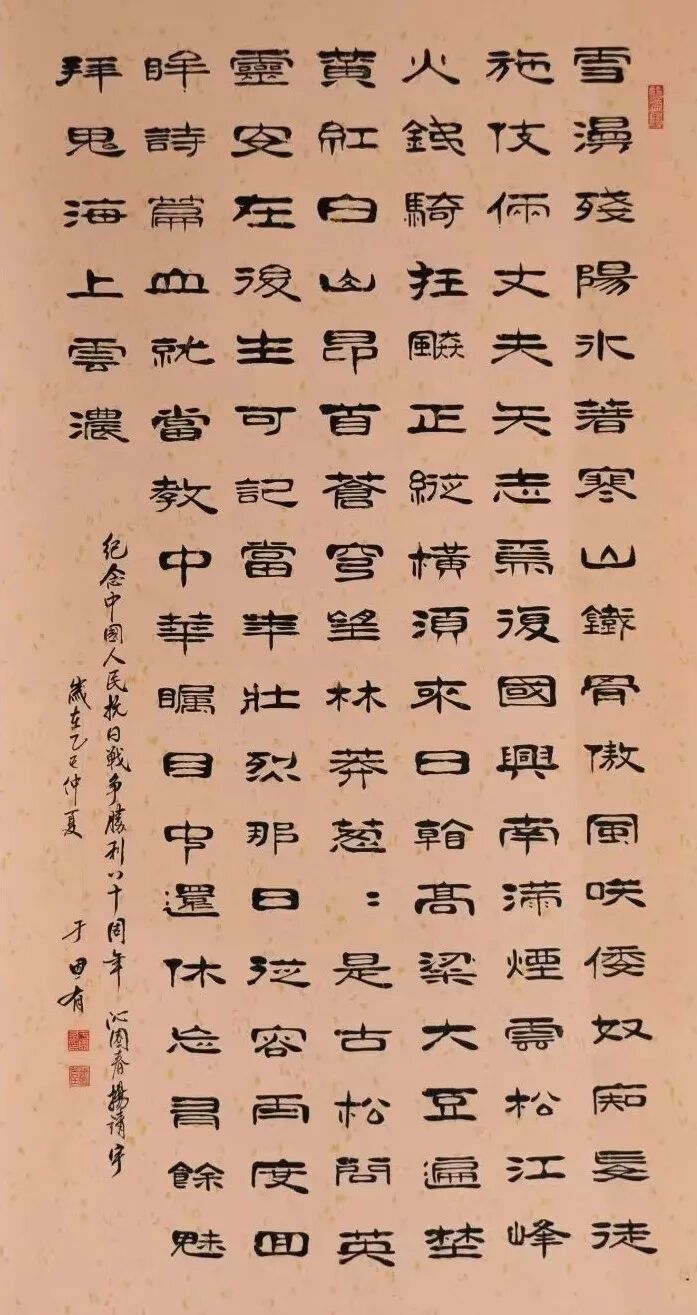 雪漫殘陽冰著寒山鐵骨傲風咲倭奴痴妄徒
施伎倆丈夫矢志焉復國興南滿煙雲松江峰
火騎狂飈正縱橫須來日高粱大豆遍埜
黄紅白山昂首蒼穹望林莽蔥〻是古松問英
靈安在後生可記當年壯烈那日從容兩度回
眸詩篇血就當教中華矚目中還休忘有餘魅
拜鬼海上雲濃
紀念中國人民抗日戰争勝利八十周年 沁園春揚靖宇
歲在乙巳仲夏 于田有